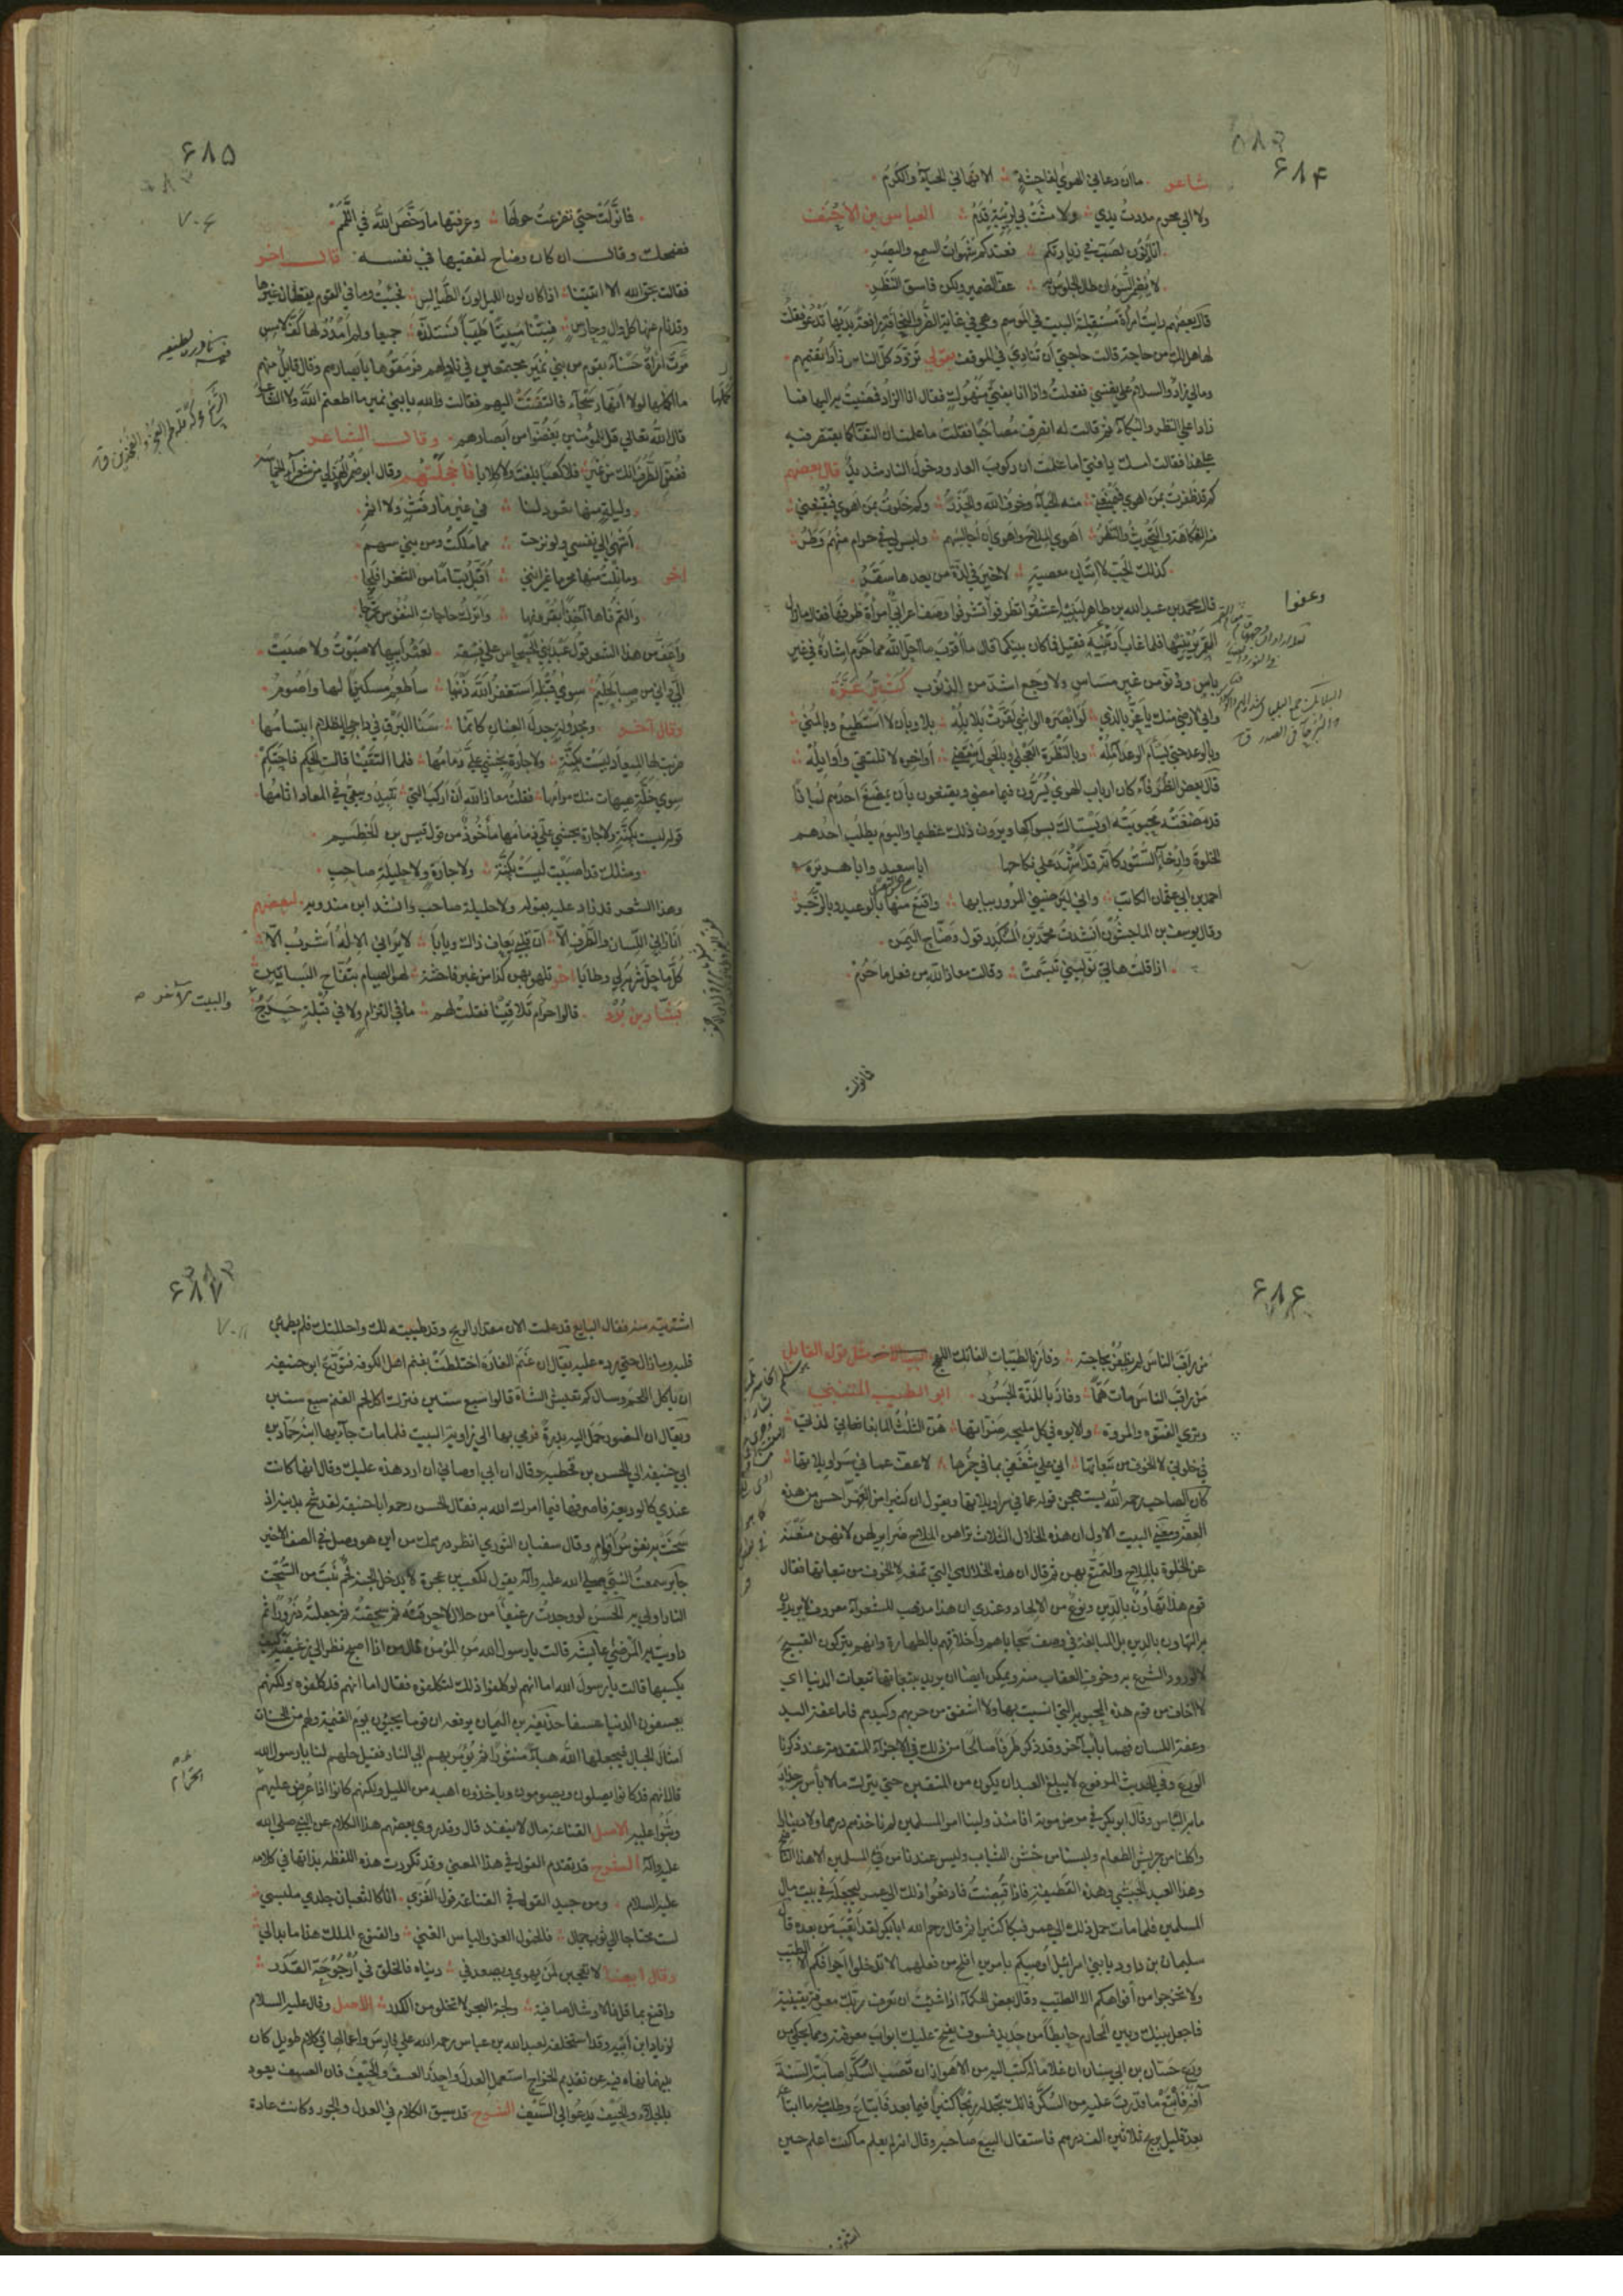 ۶۸۴
شاعر ما ان دعاني الهوي لفاحشةٍ الا نهاني الحيآء والكرمُ
ولا الي محرم مددتُ يدي ولا مشَتْ بي لريبةٍ قدمُ العباس بن الاحنف
اتاذنون لصبٍّ في زيارتكم فعندكم شهوات السمع والبصرِ
لا يُضمر السوء ان طال الجلوسُ به عفّ الضمير ولكن فاسق النظرِ
قال بعضهم رايت امرأة مستقبلة البيت في الموسم وهي في غاية الضر والنحافة رافعة يديها تدعو فقلت
لها هل لك من حاجة قالت حاجتي ان تنادي في الموقف بقولي تزوّد كل الناس زاداً يُقيمهم
ومالي زاد والسلام علي نفسي ففعلت واذا انا بفتي منهوك فقال انا الزاد فمضيت به اليها فما
زادا علي النظر والبكآء ثم قالت له انصرف مصاحبًا فقلت ما علمت ان التقآءكما يقتصر فيه
علي هذا فقالت امسك يا فتي اما علمت ان ركوب العار ودخول النار شديدٌ قال بعضهم
كم قد ظفرتُ بمن اهوي فيمنعني منه الحيآء وخوف الله والحذرُ وكم خلوتُ بمن اهوي فيُقنعني
منه الفكاهة والتحديث والنظرُ اهوي الملاح واهوي ان اُجالسهم وليس لي في حرام منهم وطرُ
كذلك الحبّ لا اتيان معصيةٍ لا خير في لذّة من بعدها سقرُ
قال محمد بن عبد الله بن طاهر لبنيه اعشقوا تظرفوا وعفّوا تشرفوا وصف اعرابي امرأة طرقها فقال ما زال
القمر يُرينيها فلما غاب ارتنيه فقيل فما كان بينكما قال ما اقرب ما احل الله مما حرم اشارة في غير
باس ودنوّ من غير مساس ولا وجع اشدّ من الذنوب كثير عزّة
واني لارضي منك يا عزّ بالذي لو ابصره الواشي لقرّت بلابله بلا وبان لا استطيع وبالمني
وبالوعد حتي يسأم الوعد آمله وبالنظرة العجلي وبالحول ينقضي اواخره لا نلتقي واوايله
قال بعض الظرفآء كان ارباب الهوي يُسرّون فيما مضي ويقنعون بان يمضغ احدهم لبانًا
قد مضغته محبوبته او يستاك بسواكها ويرون ذلك عظيما واليوم يطلب احدهم
الخلوة وارخآء الستور كانه قد اشهد علي نكاحها ابا سعيد وابا هريرة
احمد بن ابي عثمان الكاتب واني ليرضيني المرور ببابها واقنع منها بالوعيد وبالزجر
وقال يوسف بن الماجشون انشدت محمد بن المنكدر قول وضّاح اليمن
اذا قلت هاتي نوّليني تبسّمت وقالت معاذ الله من فعل ما حرُم
فانولت
۶۸۵
فما نوّلت حتي تضرعتُ حولها وعرّفتها ما رخّص الله في اللَّمَم
فضحك وقال ان كان وضاح لفقيها في نفسه قال اخر
فقالت بحق الله الا اتيتنا اذا كان لون الليل لون الطيالس فجئت وما في القوم يقظان غيرها
وقد نام عنها كل والٍ وحارس فبتنا مبيتًا طيّبًا نستلذّه جميعا ولم امدد لها كفّ لامس
مرّت امرأة حسنآء بقوم من بني نمير مجتمعين في نادٍ لهم فرمقوها بابصارهم وقال قايل منهم
ما اكملها لولا انها رسحآء فالتفتت اليهم فقالت والله يا بني نمير ما اطعتم الله ولا الشاعر
قال الله تعالي قل للمؤمنين يغضوا من ابصارهم وقال الشاعر
فغضّ الطرف انك من نمير فلا كعبًا بلغت ولا كلابا فاخجلتهم وقال ابو صخر الهذلي من شعرآء الحماسة
وليلةٍ منها تعود لنا في غير ما رفث ولا اثمِ
اشهي الي نفسي ولو نزحت مما ملكت ومن بني سهمِ
اخر وما نلت منها محرما غير انني اُقبّل بسّامًا من الثغر افلجا
والثم فاها آخذًا بقرونها واترك حاجات النفوس تحرّجا
واعفّ من هذا الشعر قول عبد بني الحسحاس علي فسقه لعمر ابيها ما صبوت ولا صبت
اليّ واني من صبا لحليم سوي قبلةٍ استغفر الله ذنبها ساطعم مسكينًا لها واصوم
وقال آخر ومجدولةٍ جدل العنان كانما سنا البرق في داجي الظلام ابتسامها
ضربت لها الميعاد ليست بكنّةٍ ولا جارة يخشي عليّ ذمامها فلما التقينا قالت الحكم فاحتكم
سوي خلّةٍ هيهات منك مرامها فقلت معاذ الله ان اركب التي تبيد ويبقي في المعاد اثامها
قوله ليست بكنّة ولا جارة يخشي عليّ ذمامها مأخوذ من قول قيس بن الخطيم
ومثلك قد اصبيت ليست بكنّة ولا جارة ولا حليلة صاحب
وهذا الشعر قد زاد عليه بقوله ولا حليلة صاحب وانشد ابن مندويه لبعضهم
انا زاني اللسان والطرف الّا ان قلبي يعاف ذاك وياباَ لا يراني الاله اشرب الّا
كلّ ما حلّ شربه لي وطابا اخر نلهو بهن كذا من غير فاحشة لهو الصيام بتفاح البساتين
بشار بن برد قالوا حرام تلاقينا فقلت لهم ما في التزام ولا في قبلةٍ حرجُ
والبيت الآخر
۶۸۶
من راقب الناس لم يظفر بحاجته وفاز بالطيّبات الفاتك اللهج مثل قول القايل
من راقب الناس مات همًّا وفاز باللذّة الجسور ابو الطيب المتنبي
وتري الفتوة والمروة والابوه في كل مليحة ضرّاتها هنّ الثلث المانعاتي لذتي
في خلوتي لا الخوف من تبعاتها اني علي شغفي بما في خُمرها لاعفّ عما في سراويلاتها
كان الصاحب رحمه الله يستهجن قوله عما في سراويلاتها ويقول ان كثيرا من العهر احسن من هذه
العفّة ومعني البيت الاول ان هذه الخلال الثلاث تراهن الملاح ضراير لهن لانهن يمنعنه
عن الخلوة بالملاح والتمتع بهن ثم قال ان هذه الخلال هي التي تمنعه لا الخوف من تبعاتها فقال
قوم هذا تهاون بالدين ونوع من الالحاد وعندي ان هذا مذهب للشعرآء معروف لا يريدون
به التهاون بالدين بل المبالغة في وصف سجاياهم واخلاقهم بالطهارة وانهم يتركون القبيح
لا لورود الشرع به وخوف العقاب منه ويمكن ايضا ان يريد بتبعاتها تبعات الدنيا اي
لا اخاف من قوم هذه المحبوبة التي انست بها ولا اشفق من حربهم وكيدهم فاما عفة اليد
وعفة اللسان فهما باب آخر وقد ذكر طرفًا صالحًا من ذلك في الاجزآء المتقدمة عند ذكرنا
الورع وفي الحديث المرفوع لا يبلغ العبد ان يكون من المتقين حتي يترك ما لا باس به حذار
ما به الباس وقال ابو بكر في مرض موته انا منذ ولينا امر المسلمين لم ناخذ لهم درهما ولا دينارا
واكلنا من جريش الطعام ولبسنا من خشن الثياب وليس عندنا من فيء المسلمين الا هذا الناضح
وهذا العبد الحبشي وهذه القطيفة فاذا قُبضتُ فادفعوا ذلك الي عمر ليجعله في بيت مال
المسلمين فلما مات حمل ذلك الي عمر فبكا كثيرا ثم قال رحم الله ابا بكر لقد اتعب من بعده قال
سليمان بن داود يا بني اسرائيل اوصيكم بامرين افلح من فعلهما لا تدخلوا اجوافكم الا الطيب
ولا تخرجوا من افواهكم الا الطيّب وقال بعض الحكمآء اذا شئت ان تعرف ربك معرفة يقينية
فاجعل بينك وبين المحارم حايطًا من حديد فسوف يفتح عليك ابواب معرفته ومما يحكي من
ورع حسّان بن ابي سنان ان غلاما له كتب اليه من الاهواز ان قصب السكر اصابته السنة
آفة فابتع ما قدرت عليه من السكر فانك تجد له ربحًا كثيرًا فيما بعد فابتاع وطلب منه ما ابتاع
بعد قليل بربح ثلاثين الف درهم فاستقال البيع صاحبه وقال انه لم يعلم ما كنت اعلم حين
اشتريته
۶۸۷
اشتريته منه فقال البايع قد علمت الان مقدار الربح وقد طيبته لك واحللتك فلم يطمئن
قلبه وما زال حتي رده عليه يقال ان غنم الغارة اختلطت بغنم اهل الكوفه فتورّع ابو حنيفه
ان ياكل اللحم وسال كم تعيش الشاة قالوا سبع سنين فترك اكل لحم الغنم سبع سنين
ويقال ان المنصور حمل اليه بدرةً فرمي بها الي زاوية البيت فلما مات جآء بها ابنه حماد بن
ابي حنيفه الي الحسن بن قحطبه وقال ان ابي اوصاني ان ارد هذه عليك وقال انها كانت
عندي كالوديعة فاصرفها فيما امرك الله به فقال الحسن رحم ابا حنيفه لقد شحّ بدينه اذ
سخت به نفوس اقوام وقال سفيان الثوري انظر درهمك من اين هو وصلّ في الصف الاخير
جابر سمعت النبيّ صلي الله عليه وآله يقول لكعب بن عجرة لا يدخل الجنة لحمٌ نبت من السحت
النار اولي به الحسن لو وجدت رغيفًا من حلال لاحرقته ثم سحقته ثم جعلته ذرورًا ثم
داويت به المرضي عايشه قالت يا رسول الله من المؤمن قال من اذا اصبح نظر الي رغيفيه كيف
يكسبهما قالت يا رسول الله اما انهم لو كلفوا ذلك لتكلفوه فقال اما انهم قد كلفوه ولكنهم
يعسفون الدنيا عسفا حذيفه بن اليمان يرفعه ان قوما يجيئون يوم القيمة ولهم من الحسنات
امثال الجبال فيجعلها الله هبآءً منثورًا ثم يؤمر بهم الي النار فقيل حلهم لنا يا رسول الله
قال انهم قد كانوا يصلون ويصومون وياخذون اهبه من الليل ولكنهم كانوا اذا عُرض عليهم
الحرام
وثبوا عليه الاصل القناعة مال لا ينفد قال وقد روي بعضهم هذا الكلام عن النبي صلي الله
عليه وآله الشرح قد تقدم القول في هذا المعني وقد تكررت هذه اللفظه بذاتها في كلامه
عليه السلام ومن جيد القول في القناعة قول الغزي انا كالثعبان جلدي ملبسي
لست محتاجا الي ثوب جمال فالخمول العز والياس الغني والقنوع الملك هذا ما بدا لي
وقال ايضا لا تعجبن لمن يهوي ويصعد في دنياه فالخلق في ارجوحة القدر
واقنع بما قل فالاوشال صافية ولجة البحر لا تخلو من الكدر الاصل وقال عليه السلام
لزياد ابن ابيه وقد استخلفه لعبد الله بن عباس رحمه الله علي فارس واعمالها في كلام طويل كان
بينهما نهاه فيه عن تقديم الخراج استعمل العدل واحذر العسف والحيف فان العسف يعود
بالجلآء والحيف يدعو الي السيف الشرح قد سبق الكلام في العدل والجور وكانت عادة